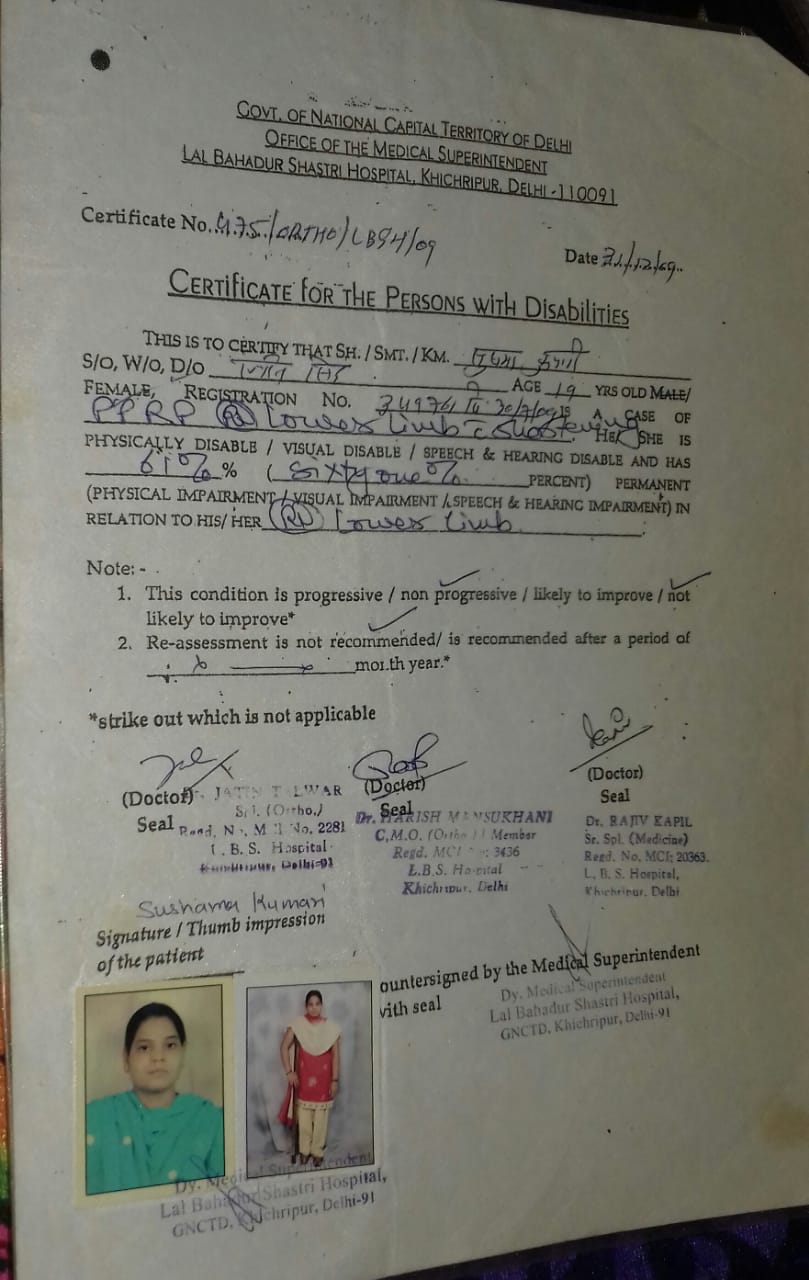 GOVT. OF NATIONAL CAPITAL TERRITORY OF DELHI
OFFICE OF THE MEDICAL SUPERINTENDENT
LAL BAHADUR SHASTRI HOSPITAL, KHICHRIPUR, DELHI -110091
Certificate No. 475/ORTHO/LBSH/09
Date 31/12/09..
CERTIFICATE FOR THE PERSONS WITH DISABILITIES
THIS IS TO CERTIFY THAT SH. / SMT. / KM.
S/O, W/O, D/O AGE 19 YRS OLD MALE/
FEMALE, REGISTRATION NO. IS A CASE OF
PPRP (Rt) Lower limb c Shortening. HE/ SHE IS
PHYSICALLY DISABLE / VISUAL DISABLE / SPEECH & HEARING DISABLE AND HAS
61% % ( Sixty one % PERCENT) PERMANENT
(PHYSICAL IMPAIRMENT / VISUAL IMPAIRMENT / SPEECH & HEARING IMPAIRMENT) IN
RELATION TO HIS/ HER (Rt) Lower limb.
Note: -
1. This condition is progressive / non progressive / likely to improve / not
likely to improve*
2. Re-assessment is not recommended/ is recommended after a period of
month year.*
*strike out which is not applicable
(Doctor) (Doctor) (Doctor)
Seal Seal Seal
JATIN TALWAR
Spl. (Ortho.)
Regd. No. MCI No. 2281
L. B. S. Hospital
Khichripur, Delhi-91
Dr. HARISH MANSUKHANI
C.M.O. (Ortho) Member
Regd. MCI No: 3436
L.B.S. Hospital
Khichripur, Delhi
Dr. RAJIV KAPIL
Sr. Spl. (Medicine)
Regd. No. MCI; 20363.
L. B. S. Hospital,
Khichripur, Delhi
Sushama Kumari
Signature / Thumb impression
of the patient
ountersigned by the Medical Superintendent
with seal
Dy. Medical Superintendent
Lal Bahadur Shastri Hospital,
GNCTD, Khichripur, Delhi-91
Dy. Medical Superintendent
Lal Bahadur Shastri Hospital,
GNCTD, Khichripur, Delhi-91